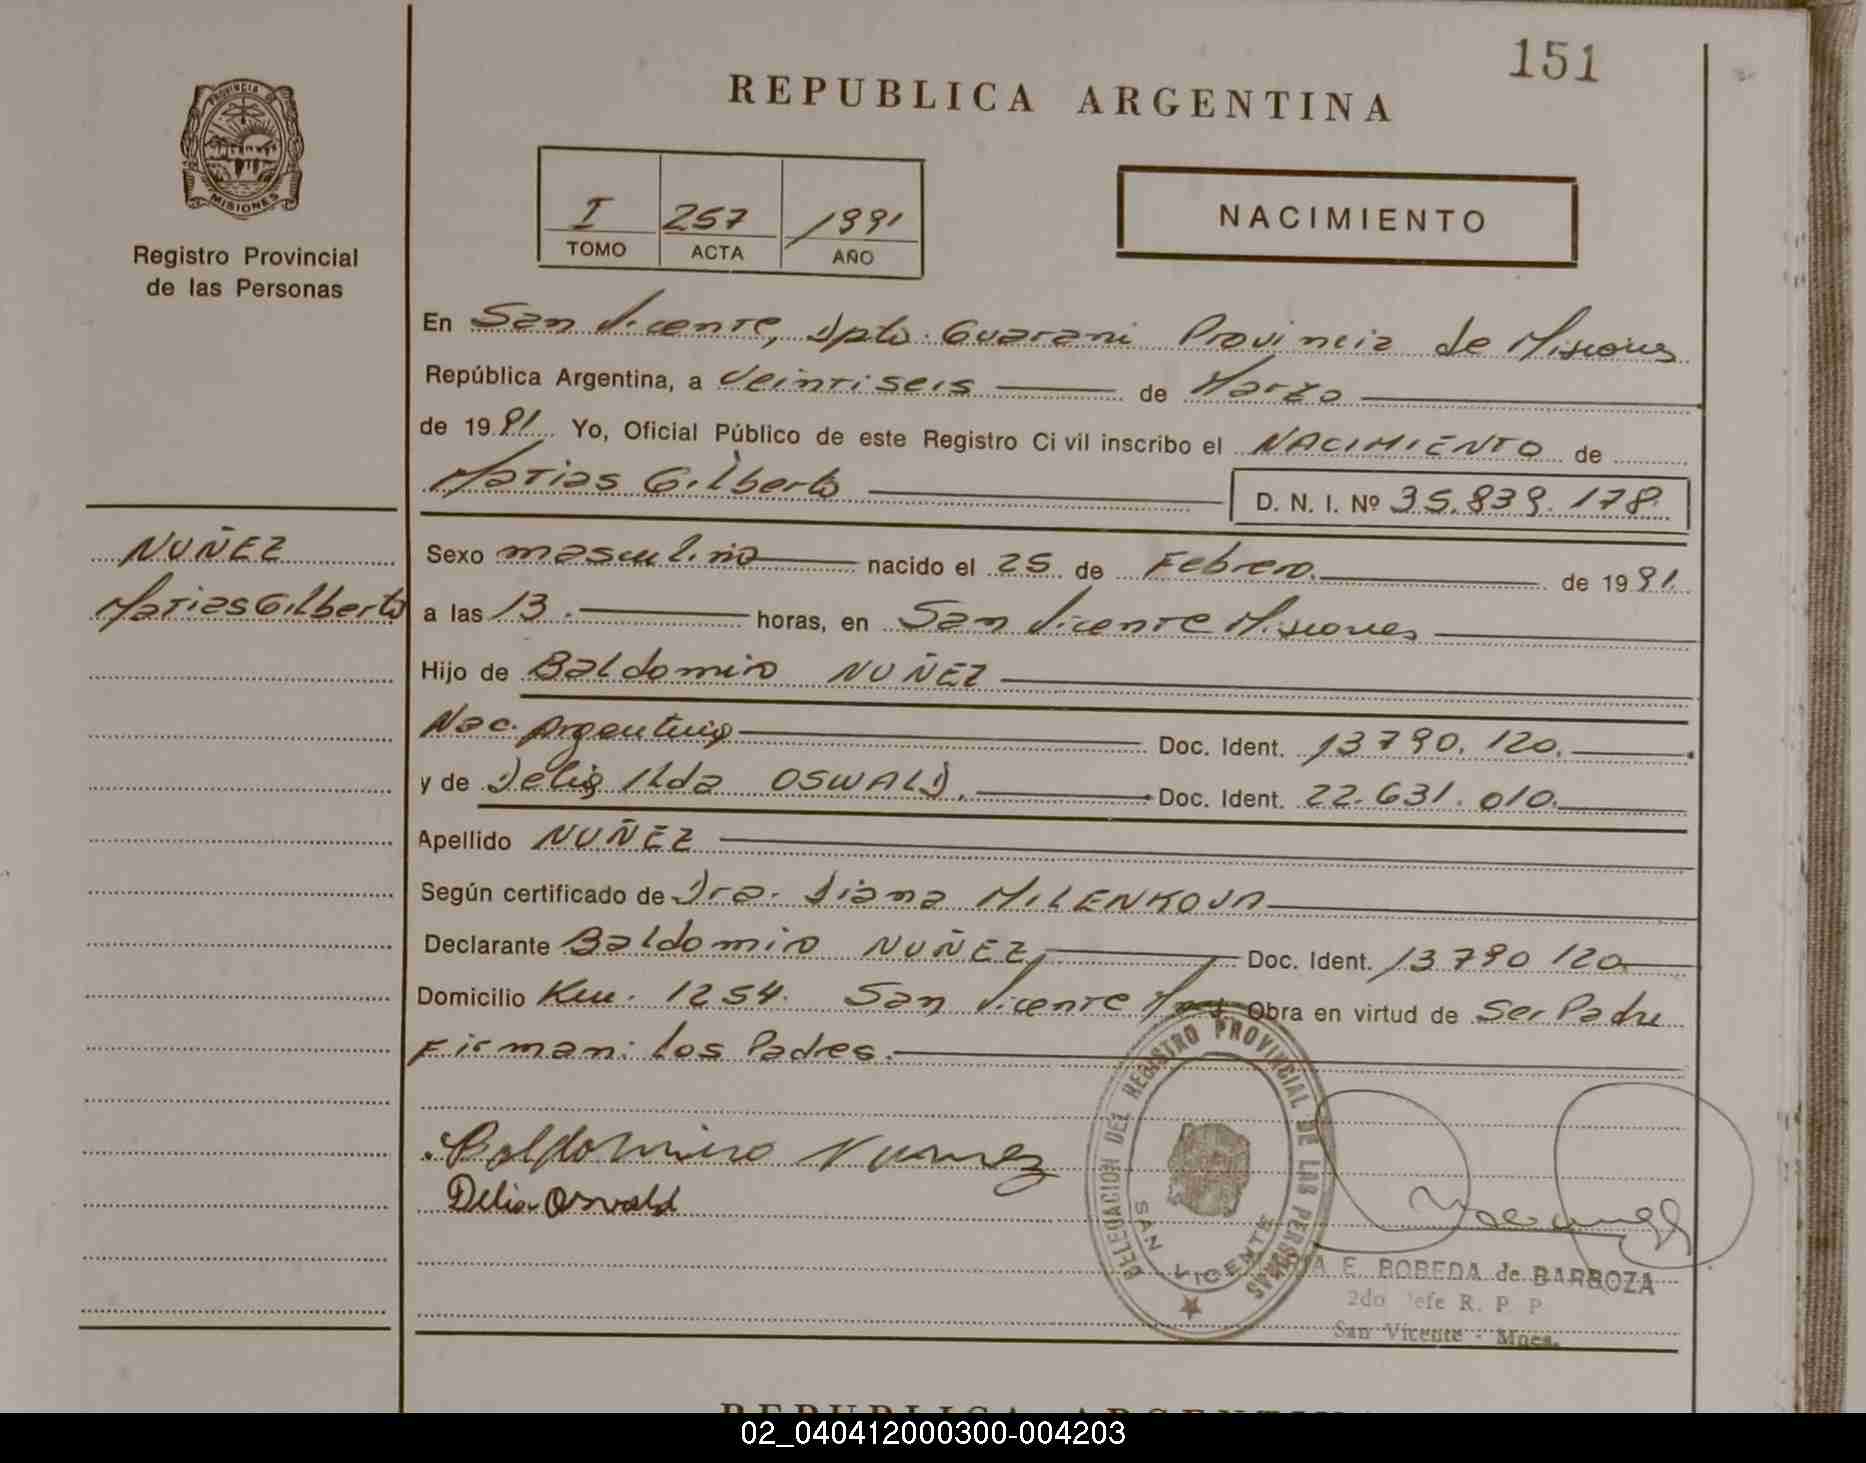 151
REPUBLICA ARGENTINA
PROVINCIA DE
MISIONES
Registro Provincial
de las Personas
I 257 1991
TOMO ACTA AÑO
NACIMIENTO
En San Vicente, Dpto. Guarani Provincia de Misiones
República Argentina, a Veintiseis de Marzo
de 1991 Yo, Oficial Público de este Registro Civil inscribo el NACIMIENTO de
Matias Gilberto D. N. I. Nº 35.839.178
NUÑEZ
Matias Gilberto
Sexo masculino nacido el 25 de Febrero de 1991
a las 13 horas, en San Vicente Misiones
Hijo de Baldomiro NUÑEZ
Nac. Argentino Doc. Ident. 13790.120.
y de Delia Ilda OSWALD. Doc. Ident. 22.631.010.
Apellido NUÑEZ
Según certificado de Dra. Diana MILENKOVA
Declarante Baldomiro NUÑEZ Doc. Ident. 13790120
Domicilio Km. 1254. San Vicente Obra en virtud de Ser Padre
Firman: los Padres.
DELEGACION DEL REGISTRO PROVINCIAL DE LAS PERSONAS
SAN VICENTE
Baldomiro Nunez
Delia Oswald
E. BOBEDA de BARBOZA
2do Jefe R. P. P
San Vicente - Mnes.
REPUBLICA ARGENTINA
02_040412000300-004203